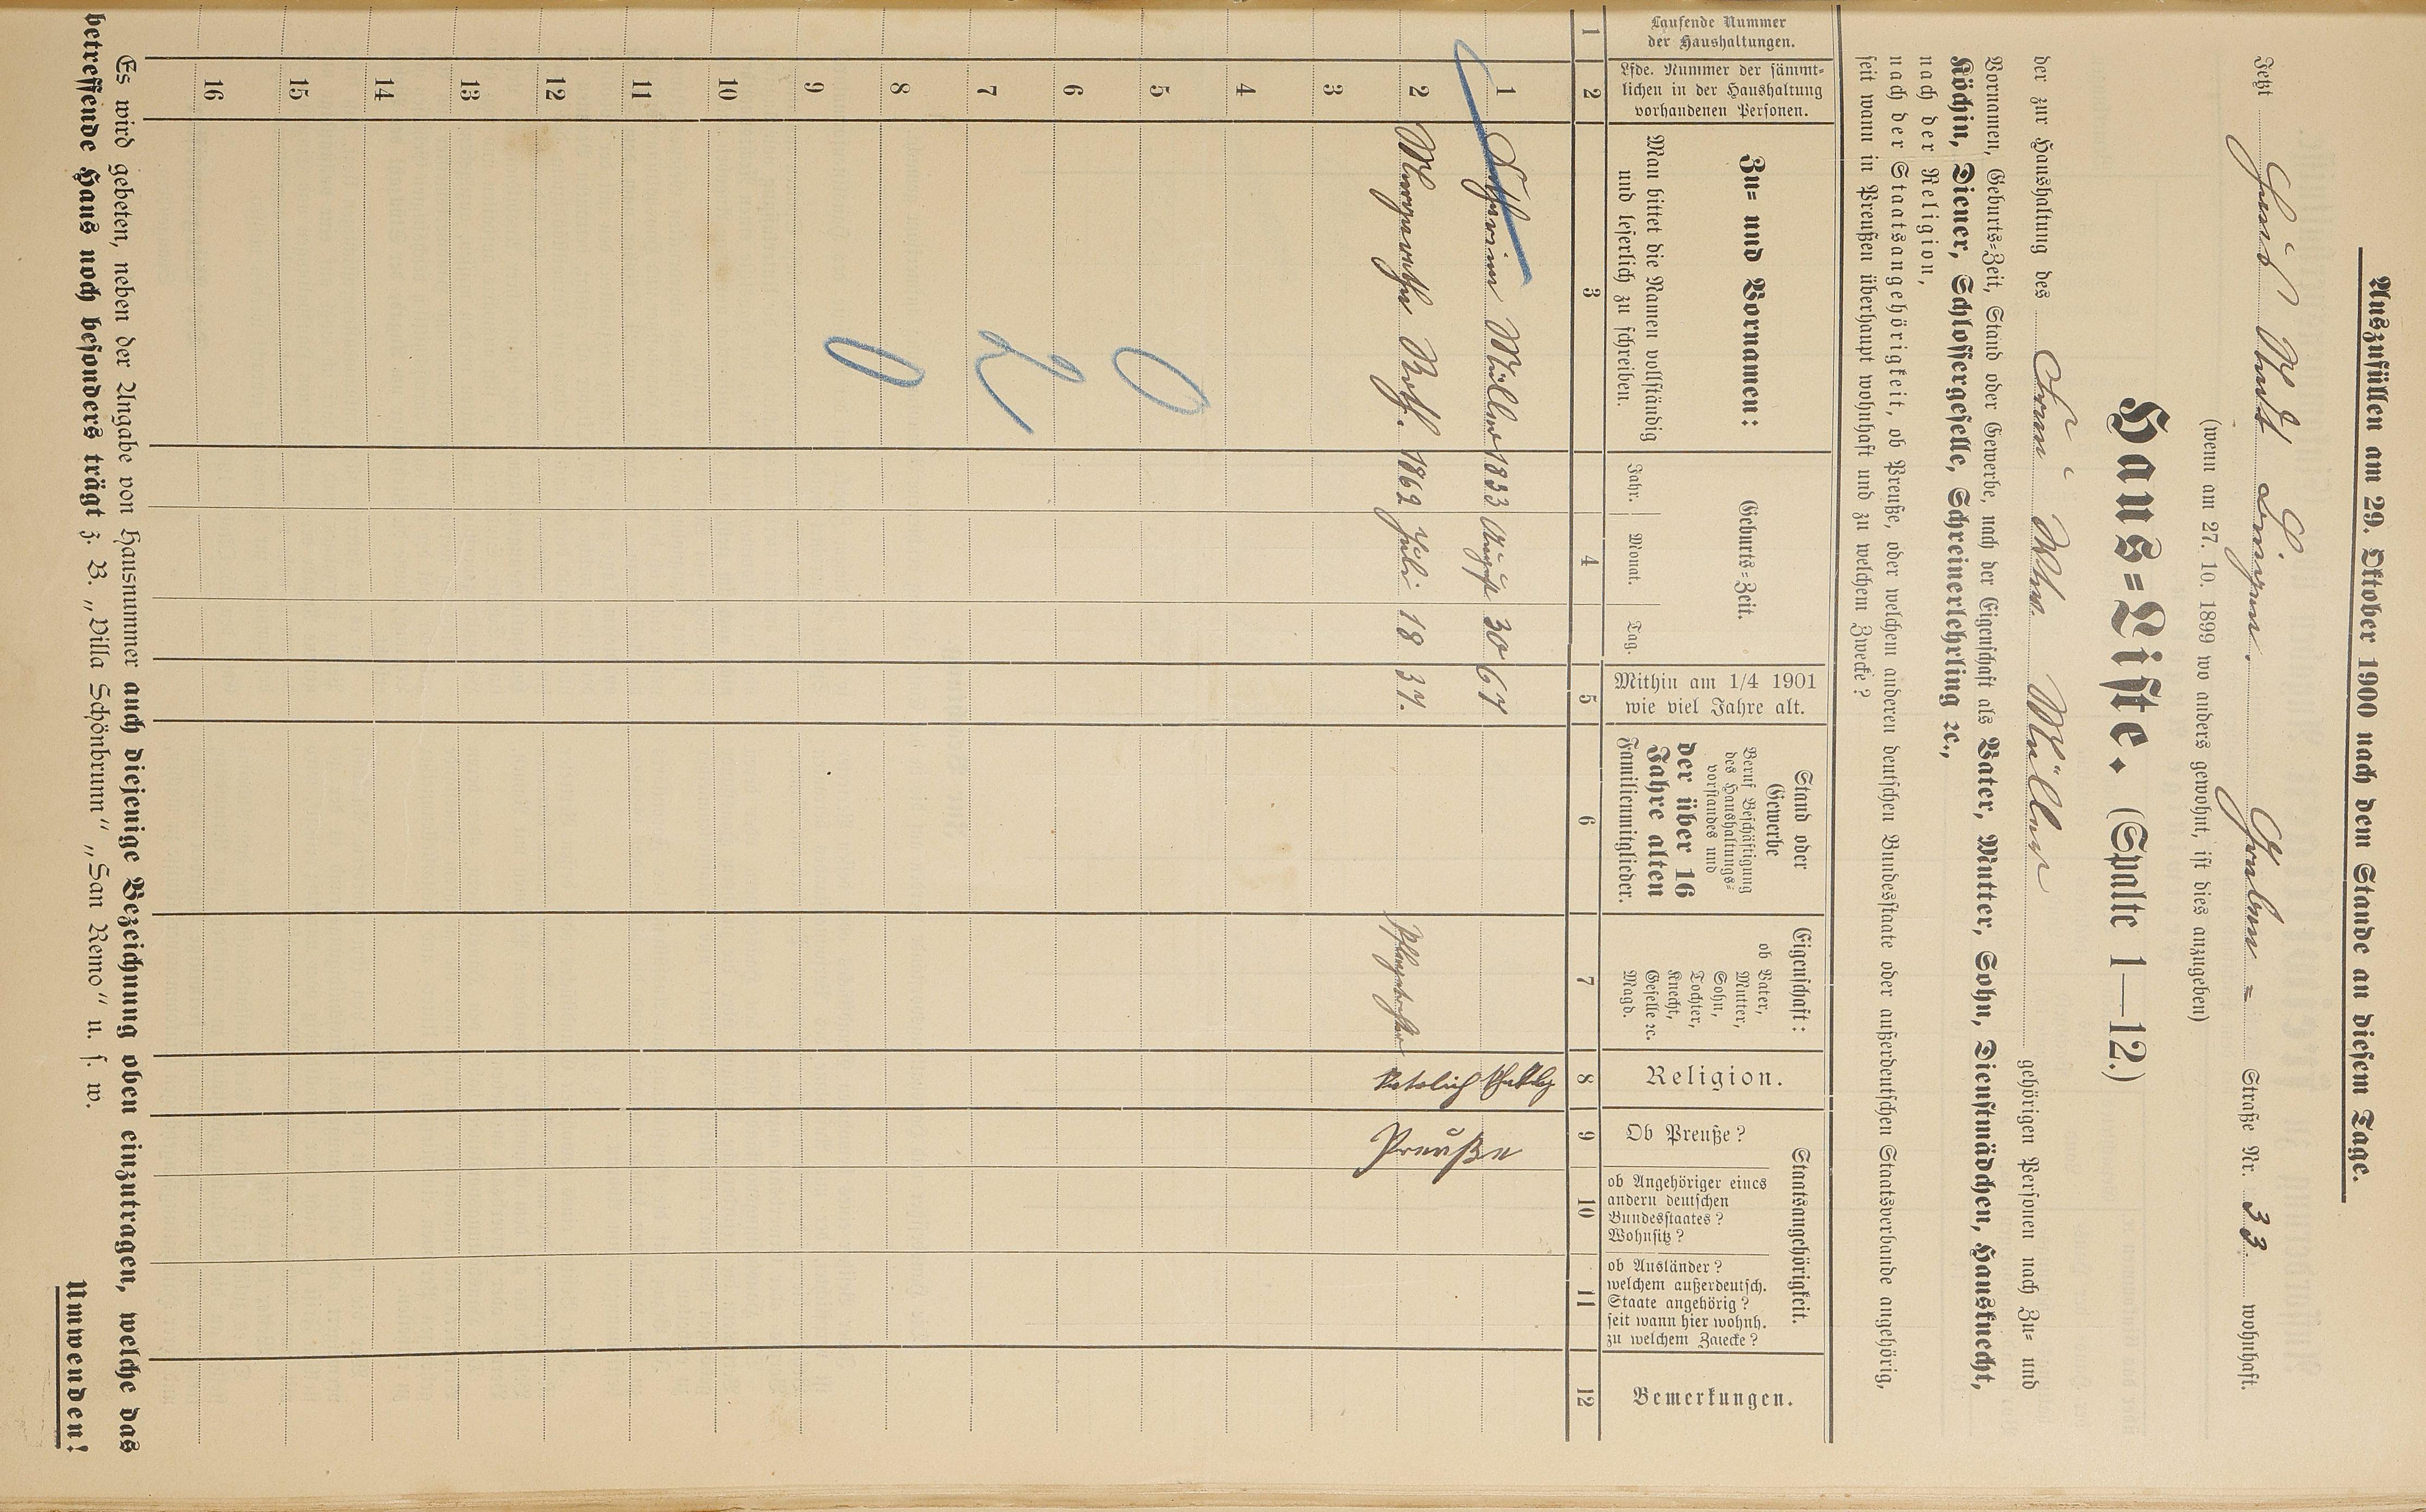 Auszufüllen am 29. Oktober 1900 nach dem Stande an diesem Tage.
Jetzt Haus Linzer. = Straße Nr. 33 wohnhaft.
(wenn am 27. 10. 1899 wo anders gewohnt, ist dies anzugeben)
Haus=Liste. (Spalte 1—12.)
der zur Haushaltung des Frau Wwe. Müller gehörigen Personen nach Zu= und
Vornamen, Geburts=Zeit, Stand oder Gewerbe, nach der Eigenschaft als Vater, Mutter, Sohn, Dienstmädchen, Hausknecht,
Köchin, Diener, Schlossergeselle, Schreinerlehrling ꝛc.,
nach der Religion,
nach der Staatsangehörigkeit, ob Preuße, oder welchem anderen deutschen Bundesstaate oder außerdeutschen Staatsverbande angehörig,
seit wann in Preußen überhaupt wohnhaft und zu welchem Zwecke?
Laufende Nummer
der Haushaltungen.
Lfde. Nummer der sämmt=
lichen in der Haushaltung
vorhandenen Personen.
Zu= und Vornamen:
Man bittet die Namen vollständig
und leserlich zu schreiben.
Geburts=Zeit.
Jahr. Monat. Tag.
Mithin am 1/4 1901
wie viel Jahre alt.
Stand oder
Gewerbe
Beruf Beschäftigung
des Haushaltungs=
vorstandes und
der über 16
Jahre alten
Familienmitglieder.
Eigenschaft:
ob Vater,
Mutter,
Sohn,
Tochter,
Knecht,
Geselle ꝛc.
Magd.
Religion.
Staatsangehörigkeit.
Ob Preuße?
ob Angehöriger eines
andern deutschen
Bundesstaates?
Wohnsitz?
ob Ausländer?
welchem außerdeutsch.
Staate angehörig?
seit wann hier wohnh.
zu welchem Zwecke?
Bemerkungen.
1 2 3 4 5 6 7 8 9 10 11 12
1 Müller 1833 August 30 67
2 Margarethe Roth. 1862 Juli 18 37. Pflegetochter Katolich Preuße
3
4
5
6
7
8
9
10
11
12
13
14
15
16
0
2
0
Es wird gebeten, neben der Angabe von Hausnummer auch diejenige Bezeichnung oben einzutragen, welche das
betreffende Haus noch besonders trägt z. B. „Villa Schönbrunn“ „San Remo“ u. s. w.
Umwenden!